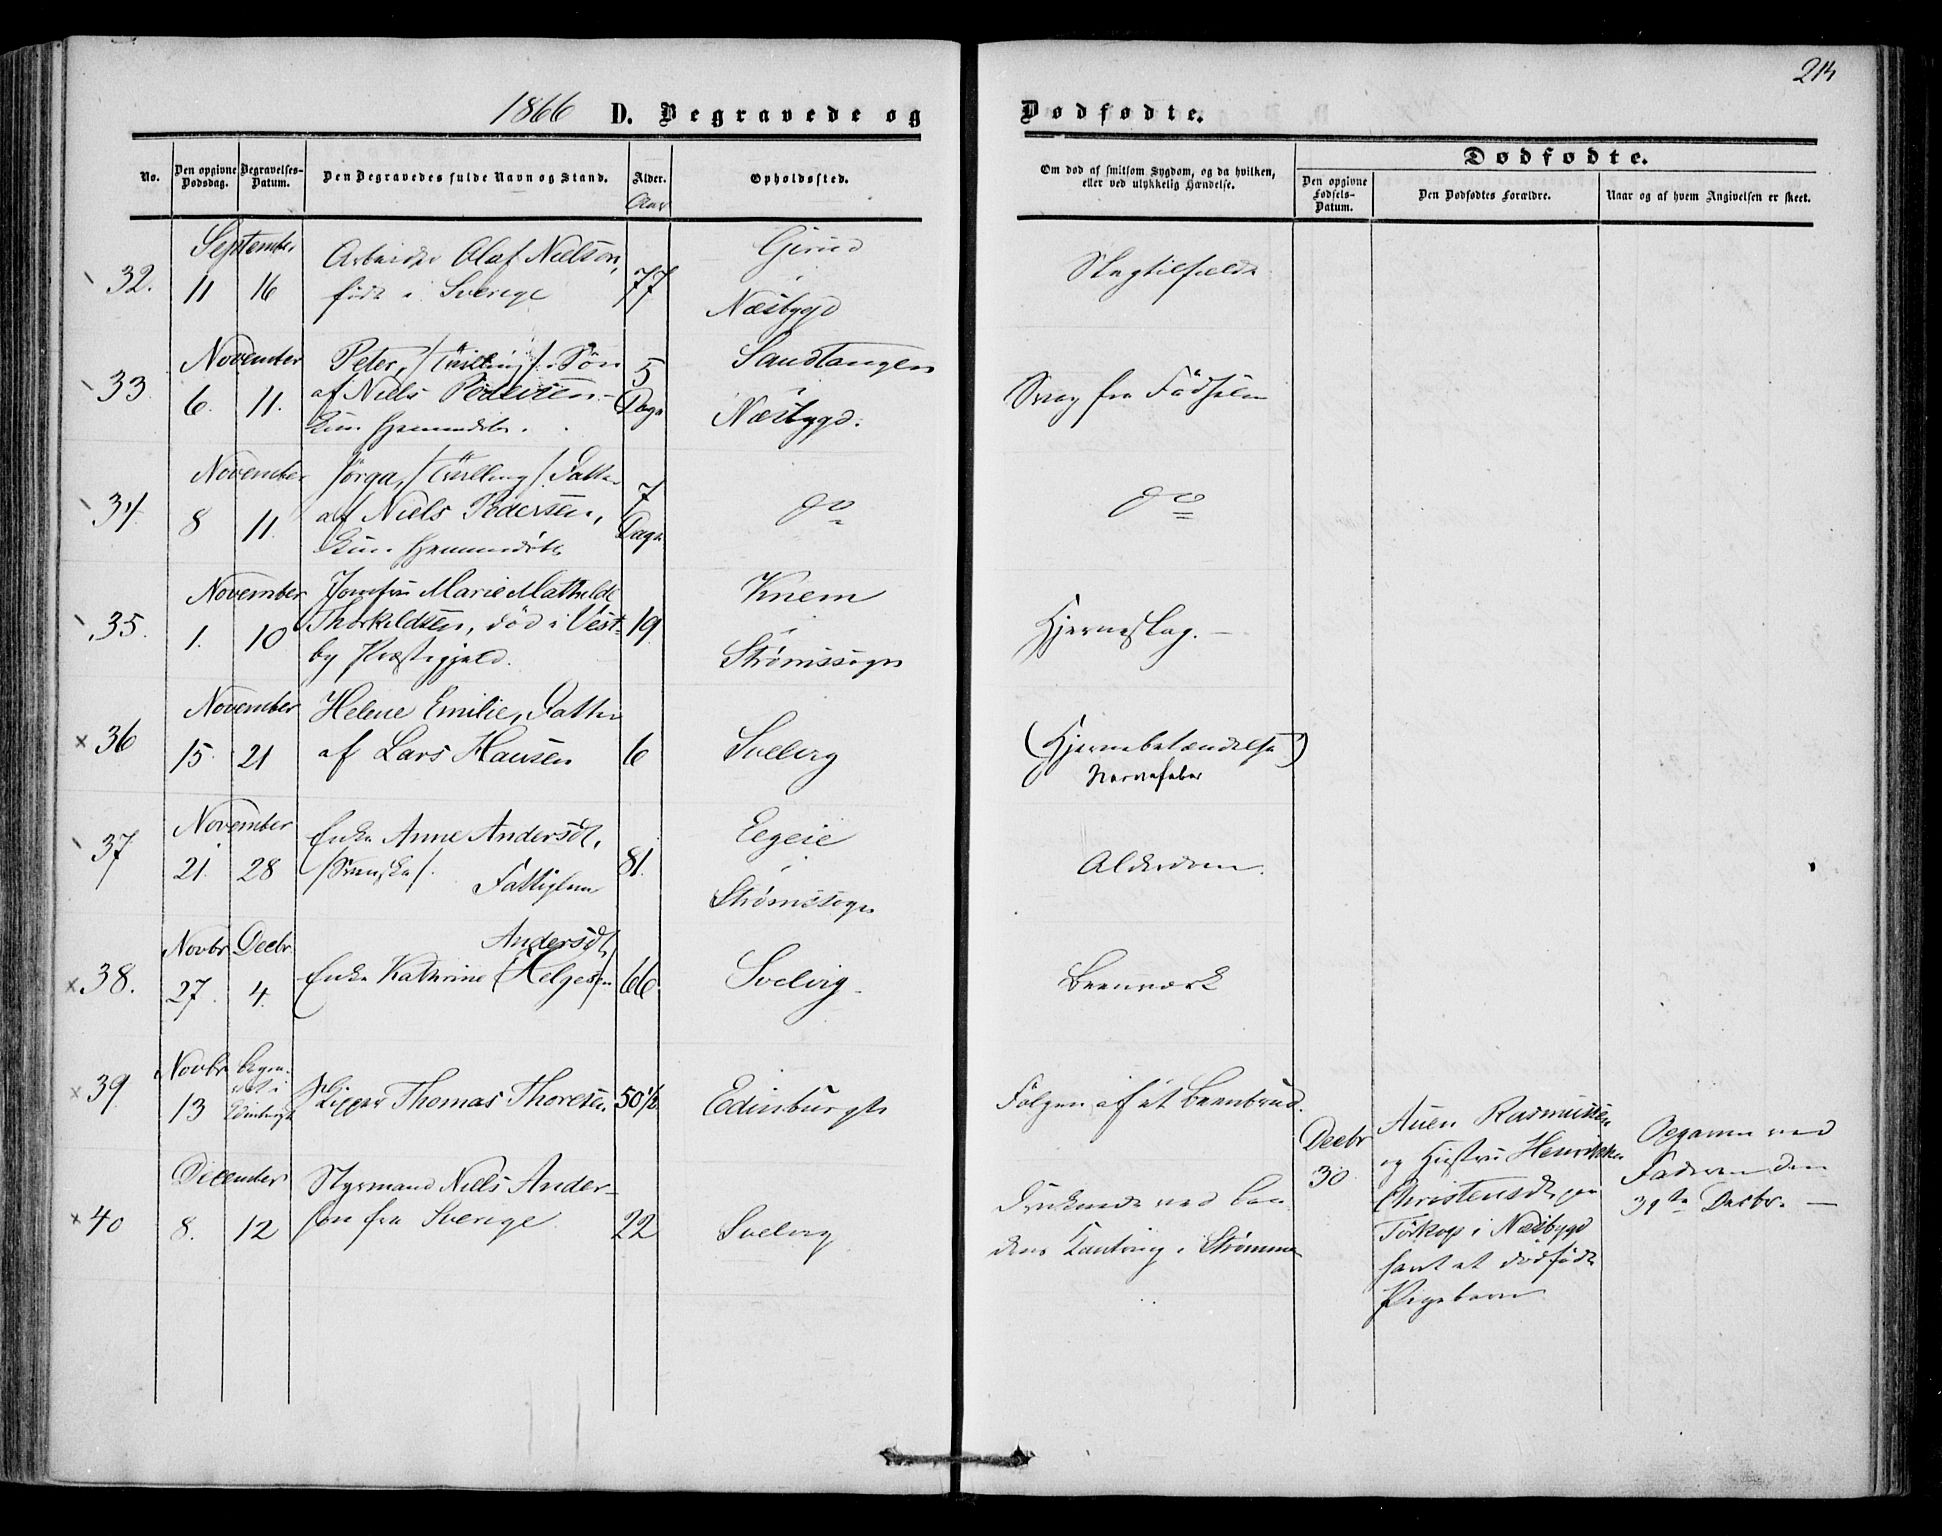 1866 D. Begravede og Dødfødte.
No.
Den opgivne Dødsdag.
Begravelses-Datum.
Den Begravedes fulde Navn og Stand.
Alder.
Aar
Opholdssted.
Om død af smitsom Sygdom, og da hvilken, eller ved ulykkelig Hændelse.
Dødfødte.
Den opgivne Fødsels-Datum.
Den Dødfødtes Forældre.
Naar og af hvem Angivelsen er skeet.
September
32. 11 16
Arbeider Olaf Nielsen,
født i Sverige
77
Næsbygd
Slagtilfælde
November
33 6. 11.
Peter, /Tvilling/. Søn
af Niels Pedersen
5 Dage
Sandtangen
Næsbygd.
Svag fra Fødselen
November
34. 8 11.
Jørga, /Tvilling/. Datter
af Niels Pedersen,
7 Dage
do
do
November
35. 1. 10
Jomfru Marie Mathilde
Thorkildsen, død i Vest-
by Præstegjeld.
19.
Knem
Strømssogn
Hjerneslag. —
November
36 15. 21
Helene Emilie, Datter
af Lars Hansen
6
Svelvig
(Hjernebetændelse)
Nervefeber
November
37 21. 28
Enke Anne Andersdt.
/Svenske/.
Fattiglem
81.
Eegeie
Strømssogn
Alderdom.
Novbr Decbr
38. 27. 4.
Andersdt,
Enke Kathrine (Helgesen
66.
Svelvig
Beenværk
Novbr
39. 13
begra-
vet i
Edinburgh
Skipper Thomas Thoresen
50½
Edinburgh
Følgen af et Beenbrud.
December
40 8. 12
Styrmand Niels Ander-
son fra Sverige
22
Svelvig
Druknede ved
i Strømmen
Decbr
30.
Rasmussen
og Hustru Henrikke
Christensdt paa
Tørkop i Næsbygd
samt et dødfødt
Pigebarn
Opgaven ved
Faderen den
31te Decbr. —